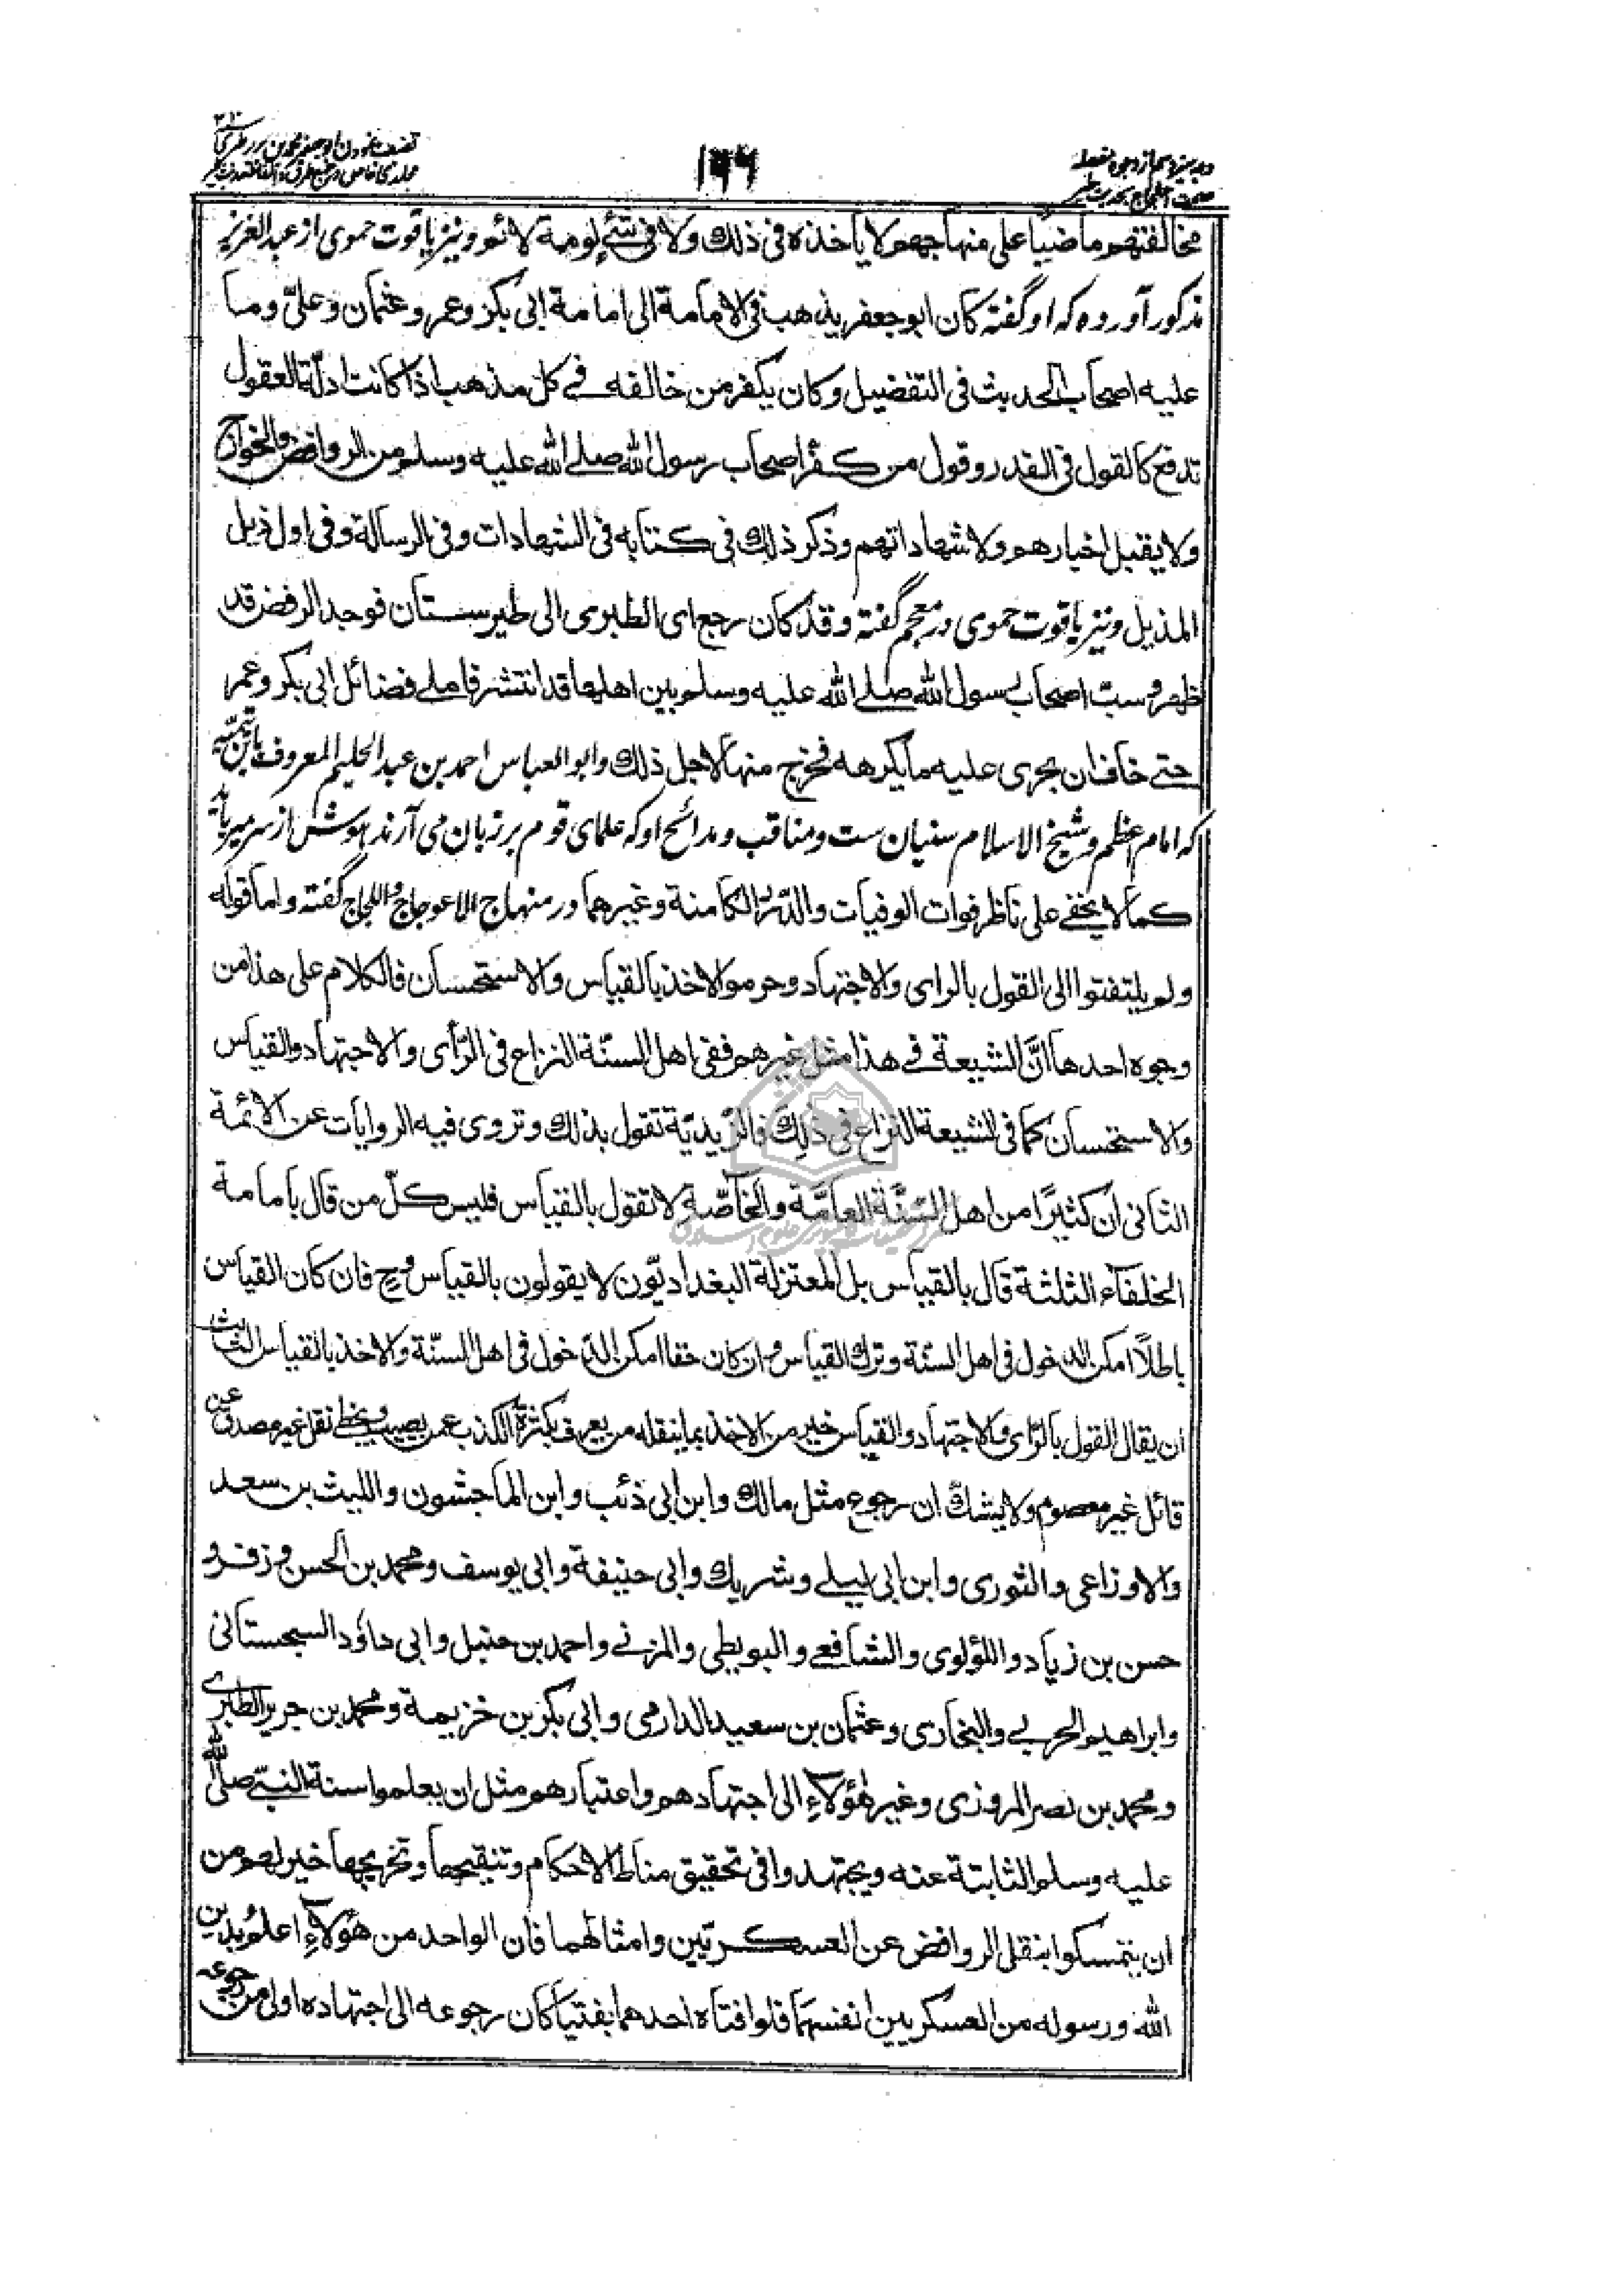 وجه سیزدهم از وجوه مفصله
صحت احتجاج بحدیث طیر
۱۶۶
تصنیف نمودن ابو جعفر محمد بن جریر طبری کتاب
مجلدی خاص در جمع طرق و الفاظ حدیث طیر
مخالفتهم ماضیا علی منهاجهم لا یأخذه فی ذلك ولا فی شئ لومة لائم و نیز یاقوت حموی از عبد العزیز
مذکور آورده که او گفته کان ابو جعفر یذهب فی الامامة الی امامة ابی بکر وعمر وعثمان وعلیّ وما
علیه اصحاب الحدیث فی التفضیل وکان یکفر من خالفه فی کل مذهب اذا کانت ادلّة العقول
تدفع کالقول فی القدر وقول من کفّر اصحاب رسول الله صلی الله علیه وسلم من الروافض والخوارج
ولا یقبل اخبارهم ولا شهاداتهم وذکر ذلك فی کتابه فی الشهادات وفی الرسالة وفی اول ذیل
المذیل و نیز یاقوت حموی در معجم گفته وقد کان رجع ای الطبری الی طبرستان فوجد الرفض قد
ظهر وسبّ اصحاب رسول الله صلی الله علیه وسلم بین اهلها قد انتشر فاملی فضائل ابی بکر وعمر
حتی خاف ان یجری علیه ما یکرهه فخرج منها لاجل ذلك وابو العباس احمد بن عبد الحلیم المعروف بابن تیمیّه
که امام اعظم و شیخ الاسلام سنیان ست و مناقب و مدائح او که علمای قوم بر زبان می آرند هوش از سر میرباید
کما لا یخفی علی ناظر فوات الوفیات والدّرر الکامنة وغیرهما در منهاج الاعوجاج واللجاج گفته واما قوله
ولم یلتفتوا الی القول بالرای والاجتهاد وحرموا الاخذ بالقیاس والاستحسان فالکلام علی هذا من
وجوه احدها انّ الشیعة فی هذا مثل غیرهم ففی اهل السنّة النزاع فی الرّأی والاجتهاد والقیاس
والاستحسان کما فی الشیعة النزاع فی ذلك فالزّیدیّة تقول بذلك وتروی فیه الروایات عن الائمة
الثانی ان کثیرًا من اهل السّنّة العامّة والخاصّة لا تقول بالقیاس فلیس کلّ من قال بامامة
الخلفآء الثلثة قال بالقیاس بل المعتزلة البغدادیّون لا یقولون بالقیاس وح فان کان القیاس
باطلًا امکن الدخول فی اهل السنّة وترك القیاس وان کان حقا امکن الدّخول فی اهل السنّة والاخذ بالقیاس الثالث
ان یقال القول بالرّای والاجتهاد والقیاس خیر من الاخذ بما ینقله من یعرف بکثرة الکذب عمن یصیب ویخطئ نقل غیر مصدق عن
قائل غیر معصوم ولا یشكّ ان رجوع مثل مالك وابن ابی ذئب وابن الماجشون واللیث بن سعد
والاوزاعی والثوری وابن ابی لیلی وشریك وابی حنیفة وابی یوسف ومحمد بن الحسن وزفر و
حسن بن زیاد واللؤلوی والشافعی والبویطی والمزنی واحمد بن حنبل وابی داؤد السجستانی
وابراهیم الحربی والبخاری وعثمان بن سعید الدارمی وابی بکر بن خزیمة ومحمد بن جریر الطبری
ومحمد بن نصر المروزی وغیر هؤلاءِ الی اجتهادهم واعتبارهم مثل ان یعلموا سنة النبیّ صلی الله
علیه وسلم الثابتة عنه ویجتهدوا فی تحقیق مناط الاحکام وتنقیحها وتخریجها خیر لهم من
ان یتمسکوا بنقل الروافض عن العسکریّین وامثالهما فان الواحد من هؤلاءِ اعلم بدین
الله ورسوله من العسکریین انفسهما فلو افتاه احدهما بفتیا کان رجوعه الی اجتهاده اولی من رجوعه
مرکز تحقیقات کامپیوتری علوم اسلامی